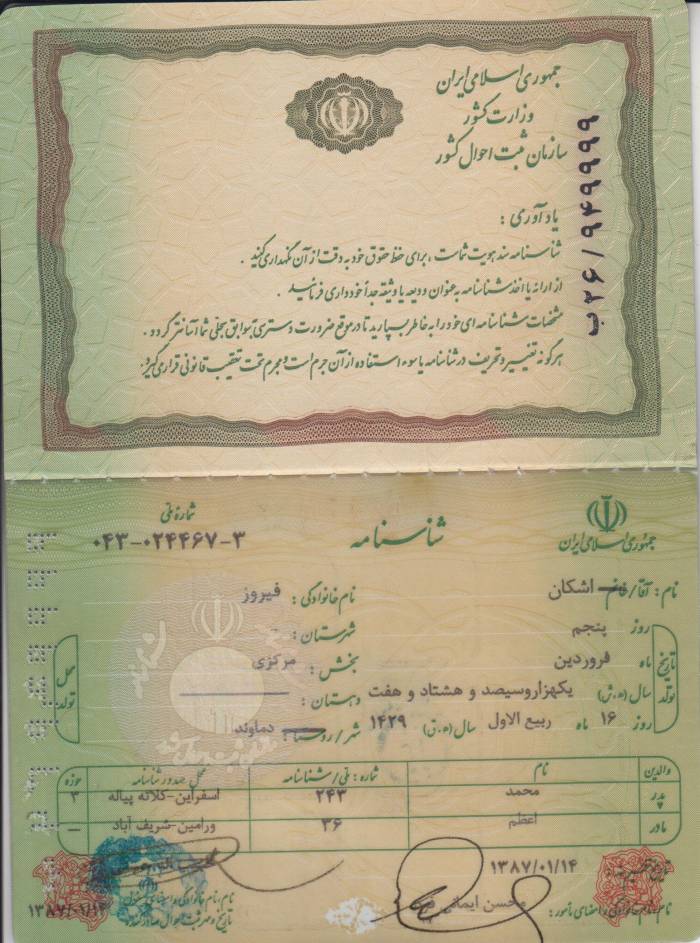 جمهوری اسلامی ایران
وزارت کشور
سازمان ثبت احوال کشور
ب۲۶/۹۴۹۹۹۹
یادآوری :
شناسنامه سند هویت شماست ، برای حفظ حقوق خود به دقت از آن نگهداری کنید .
از ارائه یا اخذ شناسنامه به عنوان ودیعه یا وثیقه جداً خودداری فرمائید .
مشخصات شناسنامه ای خود را به خاطر بسپارید تا در موقع ضرورت دسترسی به سوابق سجلی شما آسانتر گردد .
هرگونه تغییر و تحریف در شناسنامه یا سوء استفاده از آن جرم است و مجرم تحت تعقیب قانونی قرار می گیرد.
جمهوری اسلامی ایران
شناسنامه
شماره ملی
۰۴۳-۰۲۴۴۶۷-۳
نام : آقا/خانم اشکان
نام خانوادگی : فیروز
تاریخ تولد
روز پنجم
شهرستان :
ماه فروردین
بخش : مرکزی
سال (ه.ش) یکهزاروسیصد و هشتاد و هفت
دهستان :
روز ۱۶ ماه ربیع الاول سال (ه.ق) ۱۴۲۹
شهر/روستا : دماوند
محل تولد
والدین نام شماره : ملی/شناسنامه محل صدور شناسنامه حوزه
پدر محمد ۲۴۳ اسفراین-کلاته پیاله ۳
مادر اعظم ۳۶ ورامین-شریف آباد -
۱۳۸۷/۰۱/۱۴
نام، نام خانوادگی و امضای مأمور : محسن ایمانی
نام، نام خانوادگی و امضای
۱۳۸۷/۰۱/۱۴